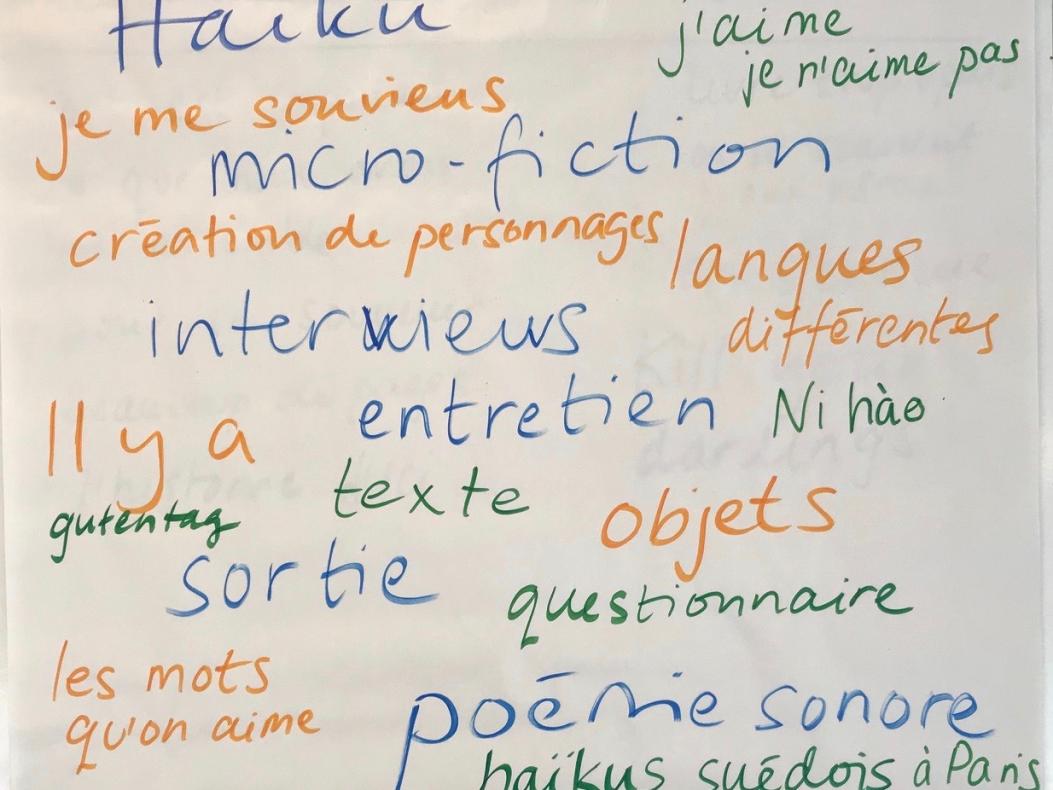 Haiku
j'aime
je n'aime pas
je me souviens
micro-fiction
création de personnages
langues
différentes
interviews
Il y a
entretien
Ni hào
texte
gutentag
objets
sortie
questionnaire
les mots
qu'on aime
poémie sonore
haïkus suédois à Paris